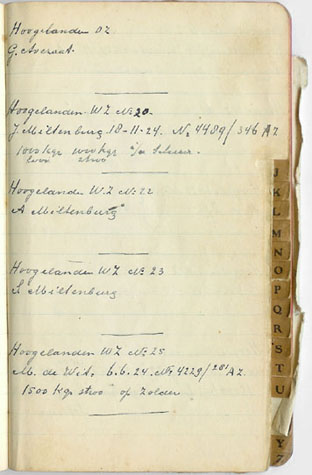 Hoogelanden OZ
G. Averaat.
Hoogelanden WZ No 20.
J Miltenburg 18-11-24. No 4489/346 AZ
1000 kgr 1000 kgr
stroo
Hoogelanden WZ No 22
A Miltenburg
Hoogelanden WZ No 23
S Miltenburg
Hoogelanden WZ No 25
M. de Wit. 6.6.24. No 4229/201 AZ.
1500 Kgr stroo op Zolder
J
K
L
M
N
O
P
Q
R
S
T
U
Y
Z